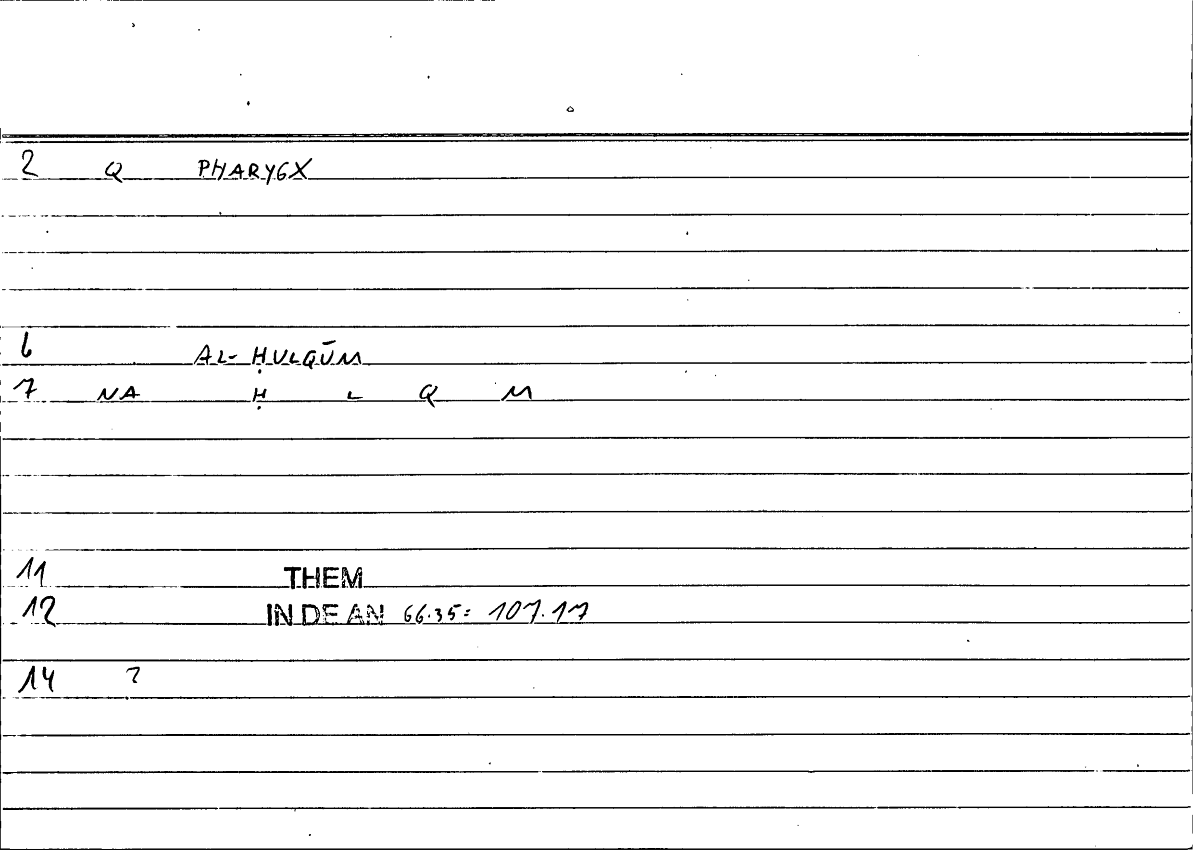 2 Q PHARYGX
6 AL-ḤULQŪM
7 NA Ḥ L Q M
11 THEM
12 IN DE AN 66.35: 107.17
14 ?